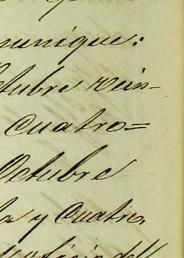 munique:
ctubre vein-
cuatro=
Octubre
ta y cuatro,